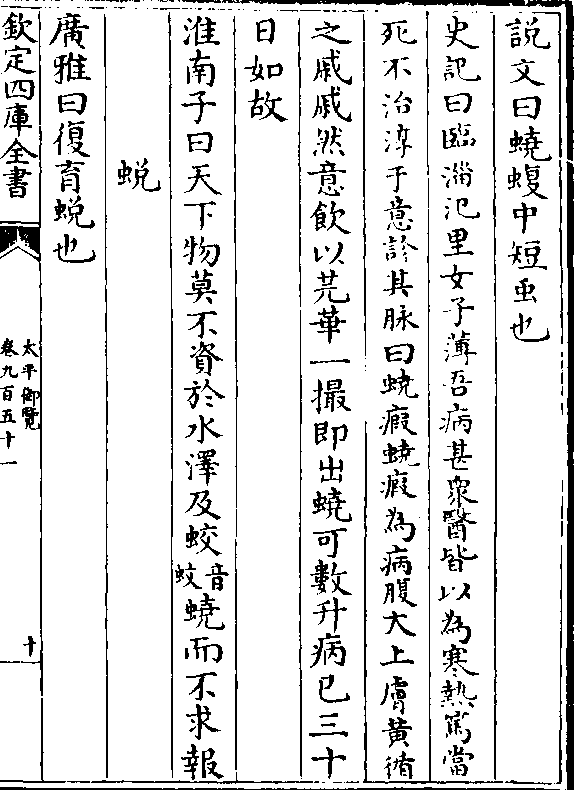 説文曰蟯蝮中短䖝也
史記曰臨淄氾里女子薄吾病甚衆醫皆以為寒熱篤當
死不治淳于意診其脉曰蟯瘕蟯瘕為病腹大上膚黄循
之戚戚然意飲以芫華一撮即出蟯可數升病已三十
日如故
淮南子曰天下物莫不資於水澤及蛟音蚊蟯而不求報
蜕
廣雅曰復育蜕也
欽定四庫全書
太平御覽
卷九百五十一
十